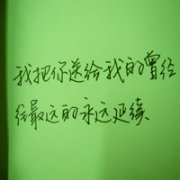 我把你送给我的曾经
给最远的永远延续、